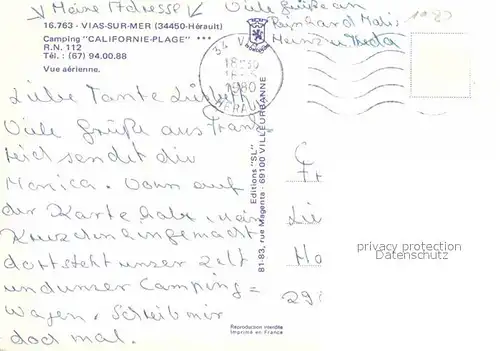 Meine Adresse
Viele Grüße an
Reinhard Mati
Heinz u Theda
1980
16.763 - VIAS-SUR-MER (34450-Hérault)
Camping "CALIFORNIE-PLAGE" ***
R.N. 112
Tél. : (67) 94.00.88
Vue aérienne.
34 VIAS
18H30
1980
HERAULT
Liebe Tante
Viele Grüße aus Frank=
reich sendet dir
Monica. Vorn auf
der Karte habe ich ein
Kreuzchen hingemacht
dort steht unser Zelt
und unser Camping=
Wagen. Schreib mir
doch mal.
Editions "SL"
81-83, rue Magenta - 69100 VILLEURBANNE
Reproduction interdite
Imprimé en France
privacy protection
Datenschutz